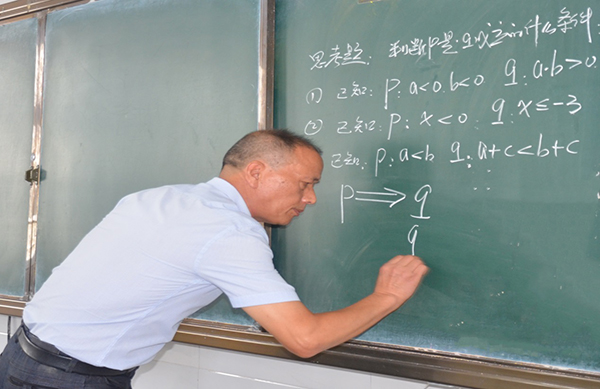 思考题: 判断P是q成立的什么条件
① 已知: P: a<0.b<0 q: a·b>0
② 已知: P: x<0. q: x≤-3
已知: P: a<b q: a+c<b+c
P⟹q
q